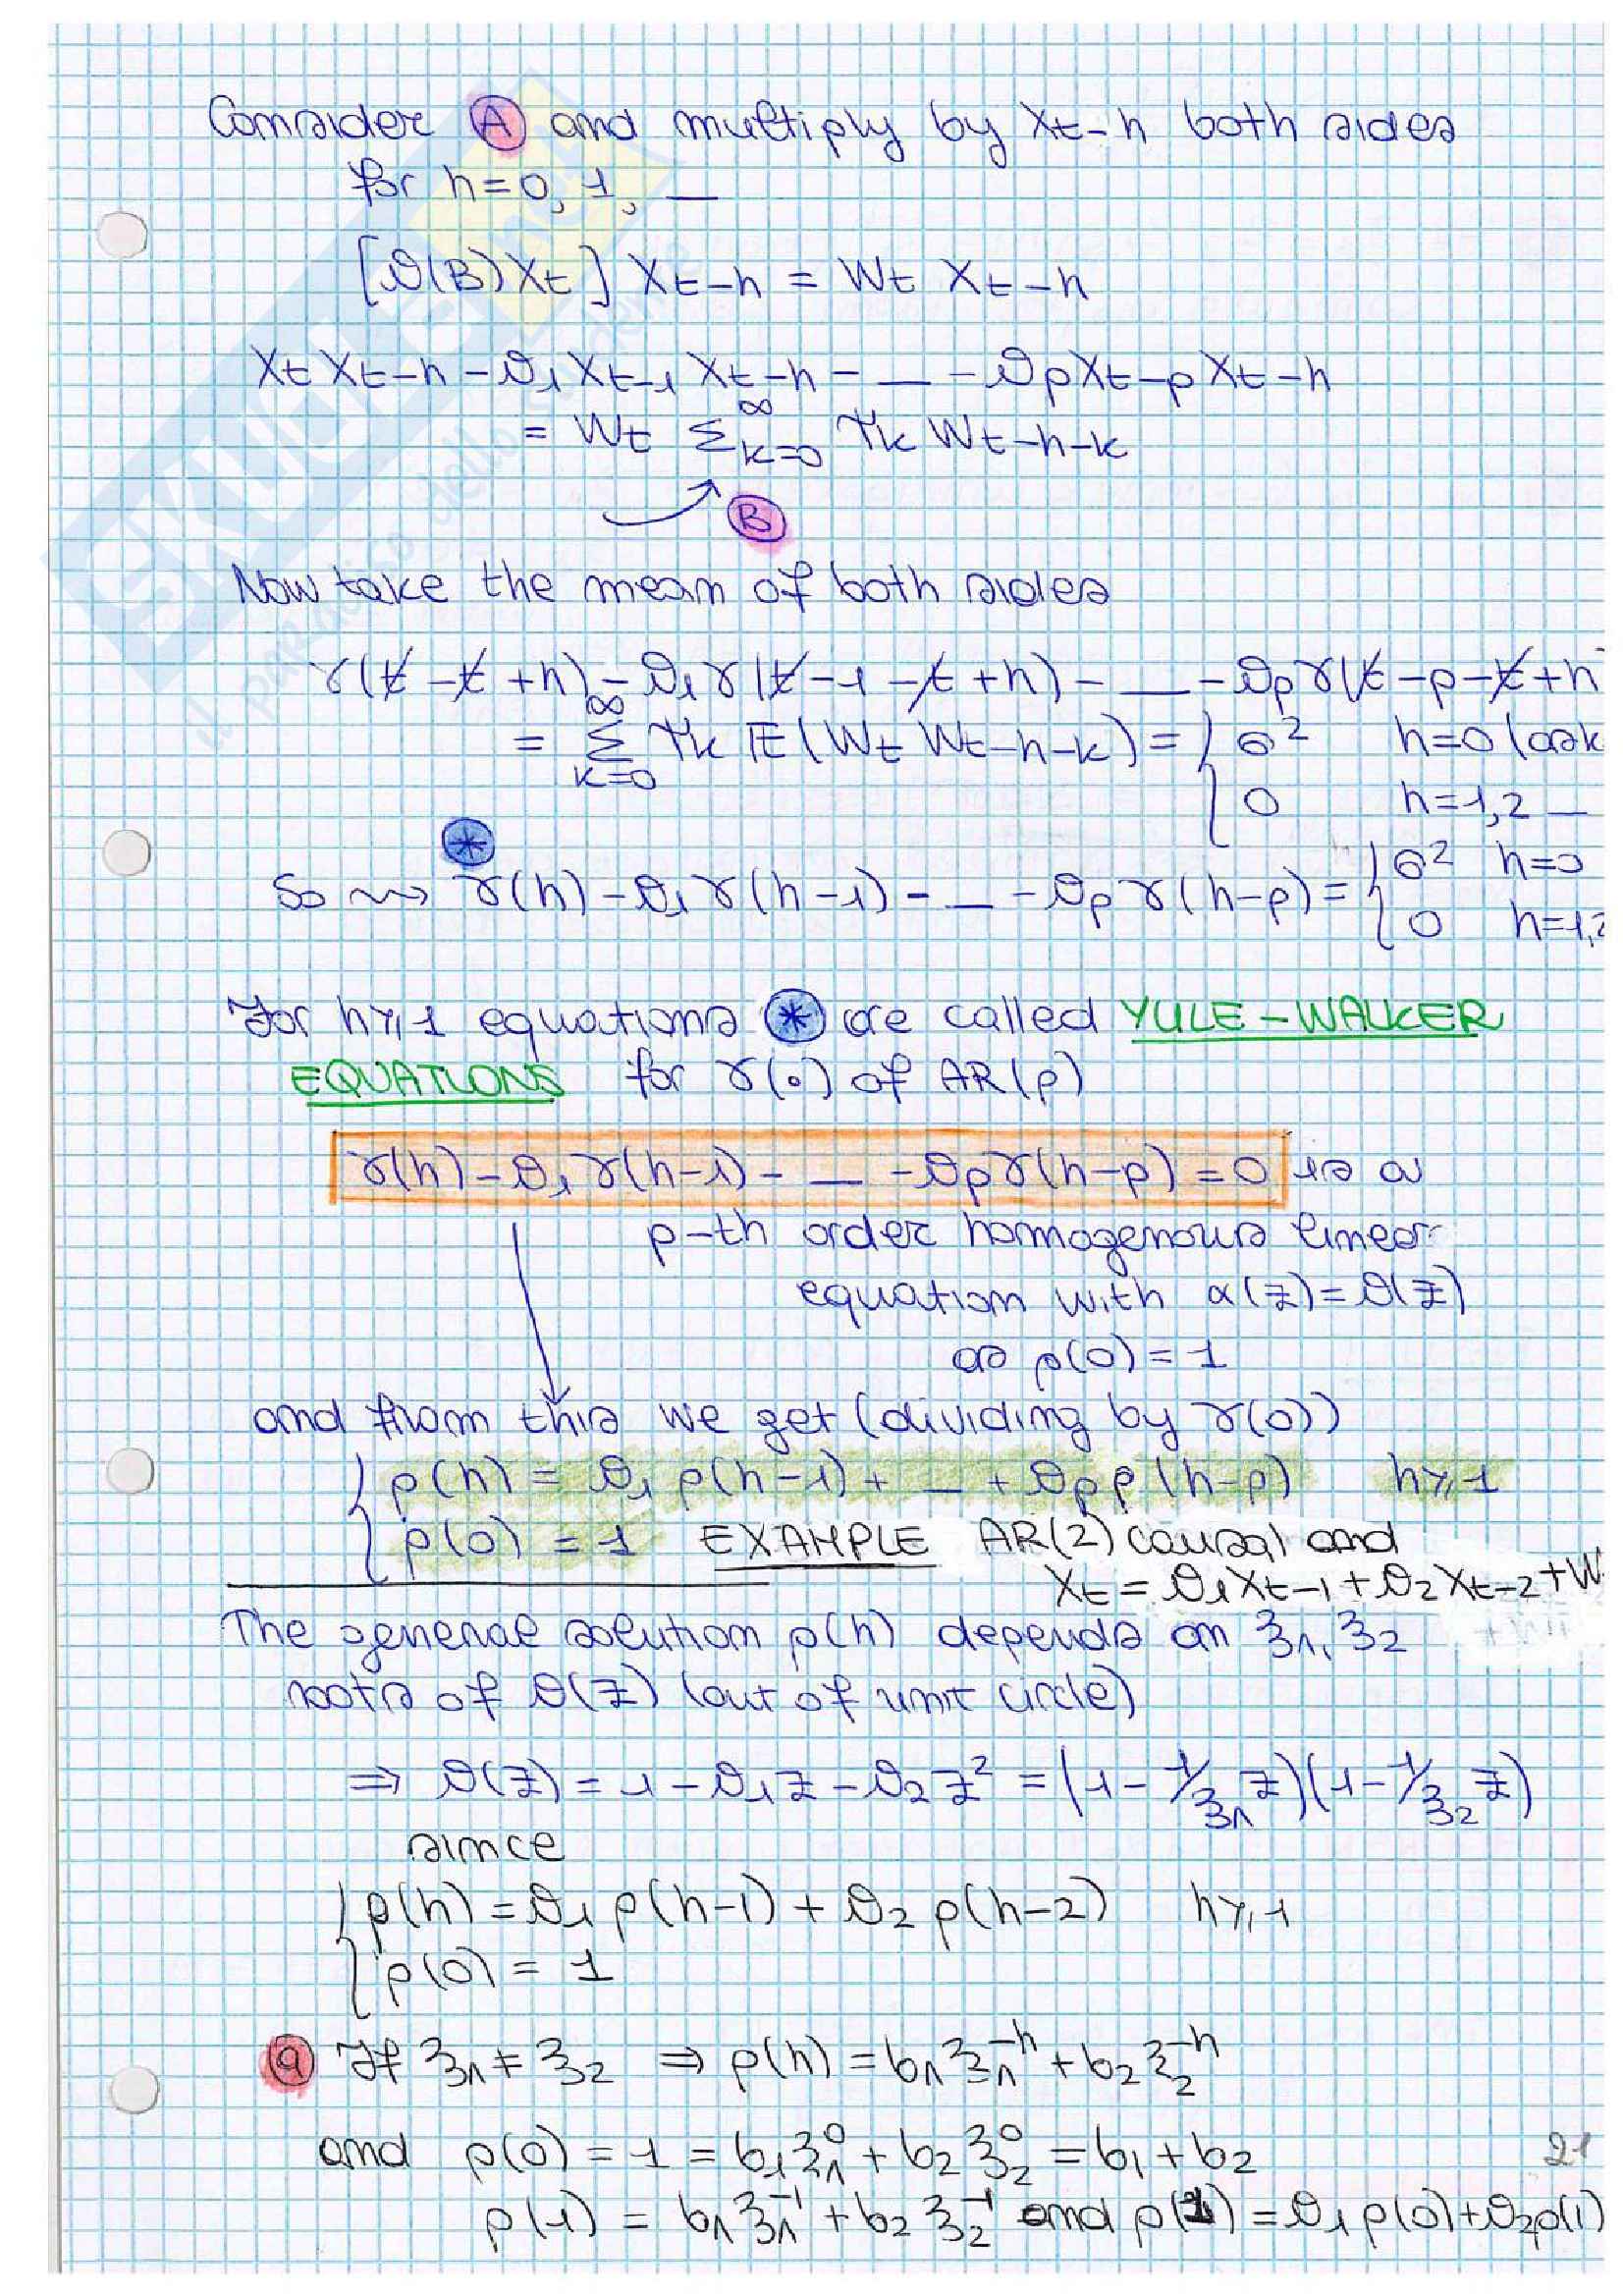 Consider Ⓐ and multiply by Xt-h both sides
for h=0, 1, _
[ϑ(B)Xt] Xt-h = Wt Xt-h
Xt Xt-h - ϑ1 Xt-1 Xt-h - _ - ϑp Xt-p Xt-h
= Wt Σ_{k=0}^{∞} Ψk Wt-h-k
Ⓑ
Now take the mean of both sides
γ(t-t+h) - ϑ1 γ(t-1-t+h) - _ - ϑp γ(t-p-t+h
= Σ_{k=0}^{∞} Ψk E(Wt Wt-h-k) = { σ² h=0 (ask
0 h=1,2 _
So ⇝ γ(h) - ϑ1 γ(h-1) - _ - ϑp γ(h-p) = { σ² h=0
* 0 h=1,2
For h⩾1 equations * are called YULE-WALKER
EQUATIONS for γ(·) of AR(p)
γ(h) - ϑ1 γ(h-1) - _ - ϑp γ(h-p) = 0 is a
p-th order homogenous linear
equation with α(z) = ϑ(z)
as ρ(0) = 1
and from this we get (dividing by γ(0))
{ ρ(h) = ϑ1 ρ(h-1) + _ + ϑp ρ(h-p) h⩾1
ρ(0) = 1 EXAMPLE AR(2) causal and
Xt = ϑ1 Xt-1 + ϑ2 Xt-2 + W
The general solution ρ(h) depends on ξ1, ξ2
roots of ϑ(z) (out of unit circle)
⇒ ϑ(z) = 1 - ϑ1 z - ϑ2 z² = (1 - 1/ξ1 z)(1 - 1/ξ2 z)
since
{ ρ(h) = ϑ1 ρ(h-1) + ϑ2 ρ(h-2) h⩾1
ρ(0) = 1
ⓐ If ξ1 ≠ ξ2 ⇒ ρ(h) = b1 ξ1^{-h} + b2 ξ2^{-h}
and ρ(0) = 1 = b1 ξ1^0 + b2 ξ2^0 = b1 + b2
21
ρ(1) = b1 ξ1^{-1} + b2 ξ2^{-1} and ρ(1) = ϑ1 ρ(0) + ϑ2 ρ(1)